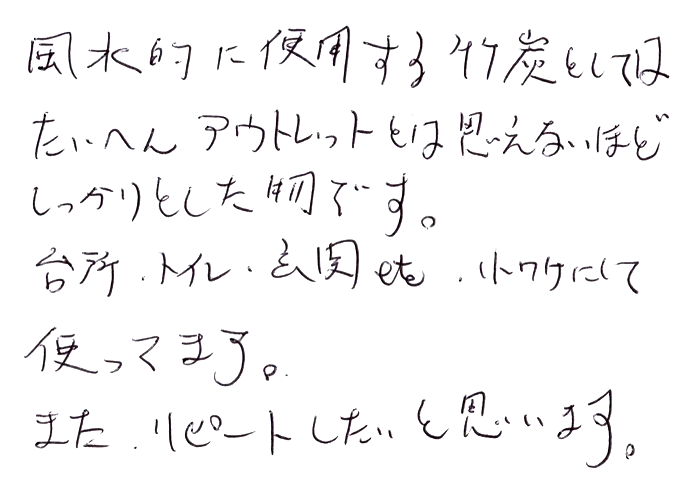 風水的に使用する竹炭としては
たいへんアウトレットとは思えないほど
しっかりとした物です。
台所・トイレ・玄関etc・小ワケにして
使ってます。
また、リピートしたいと思います。